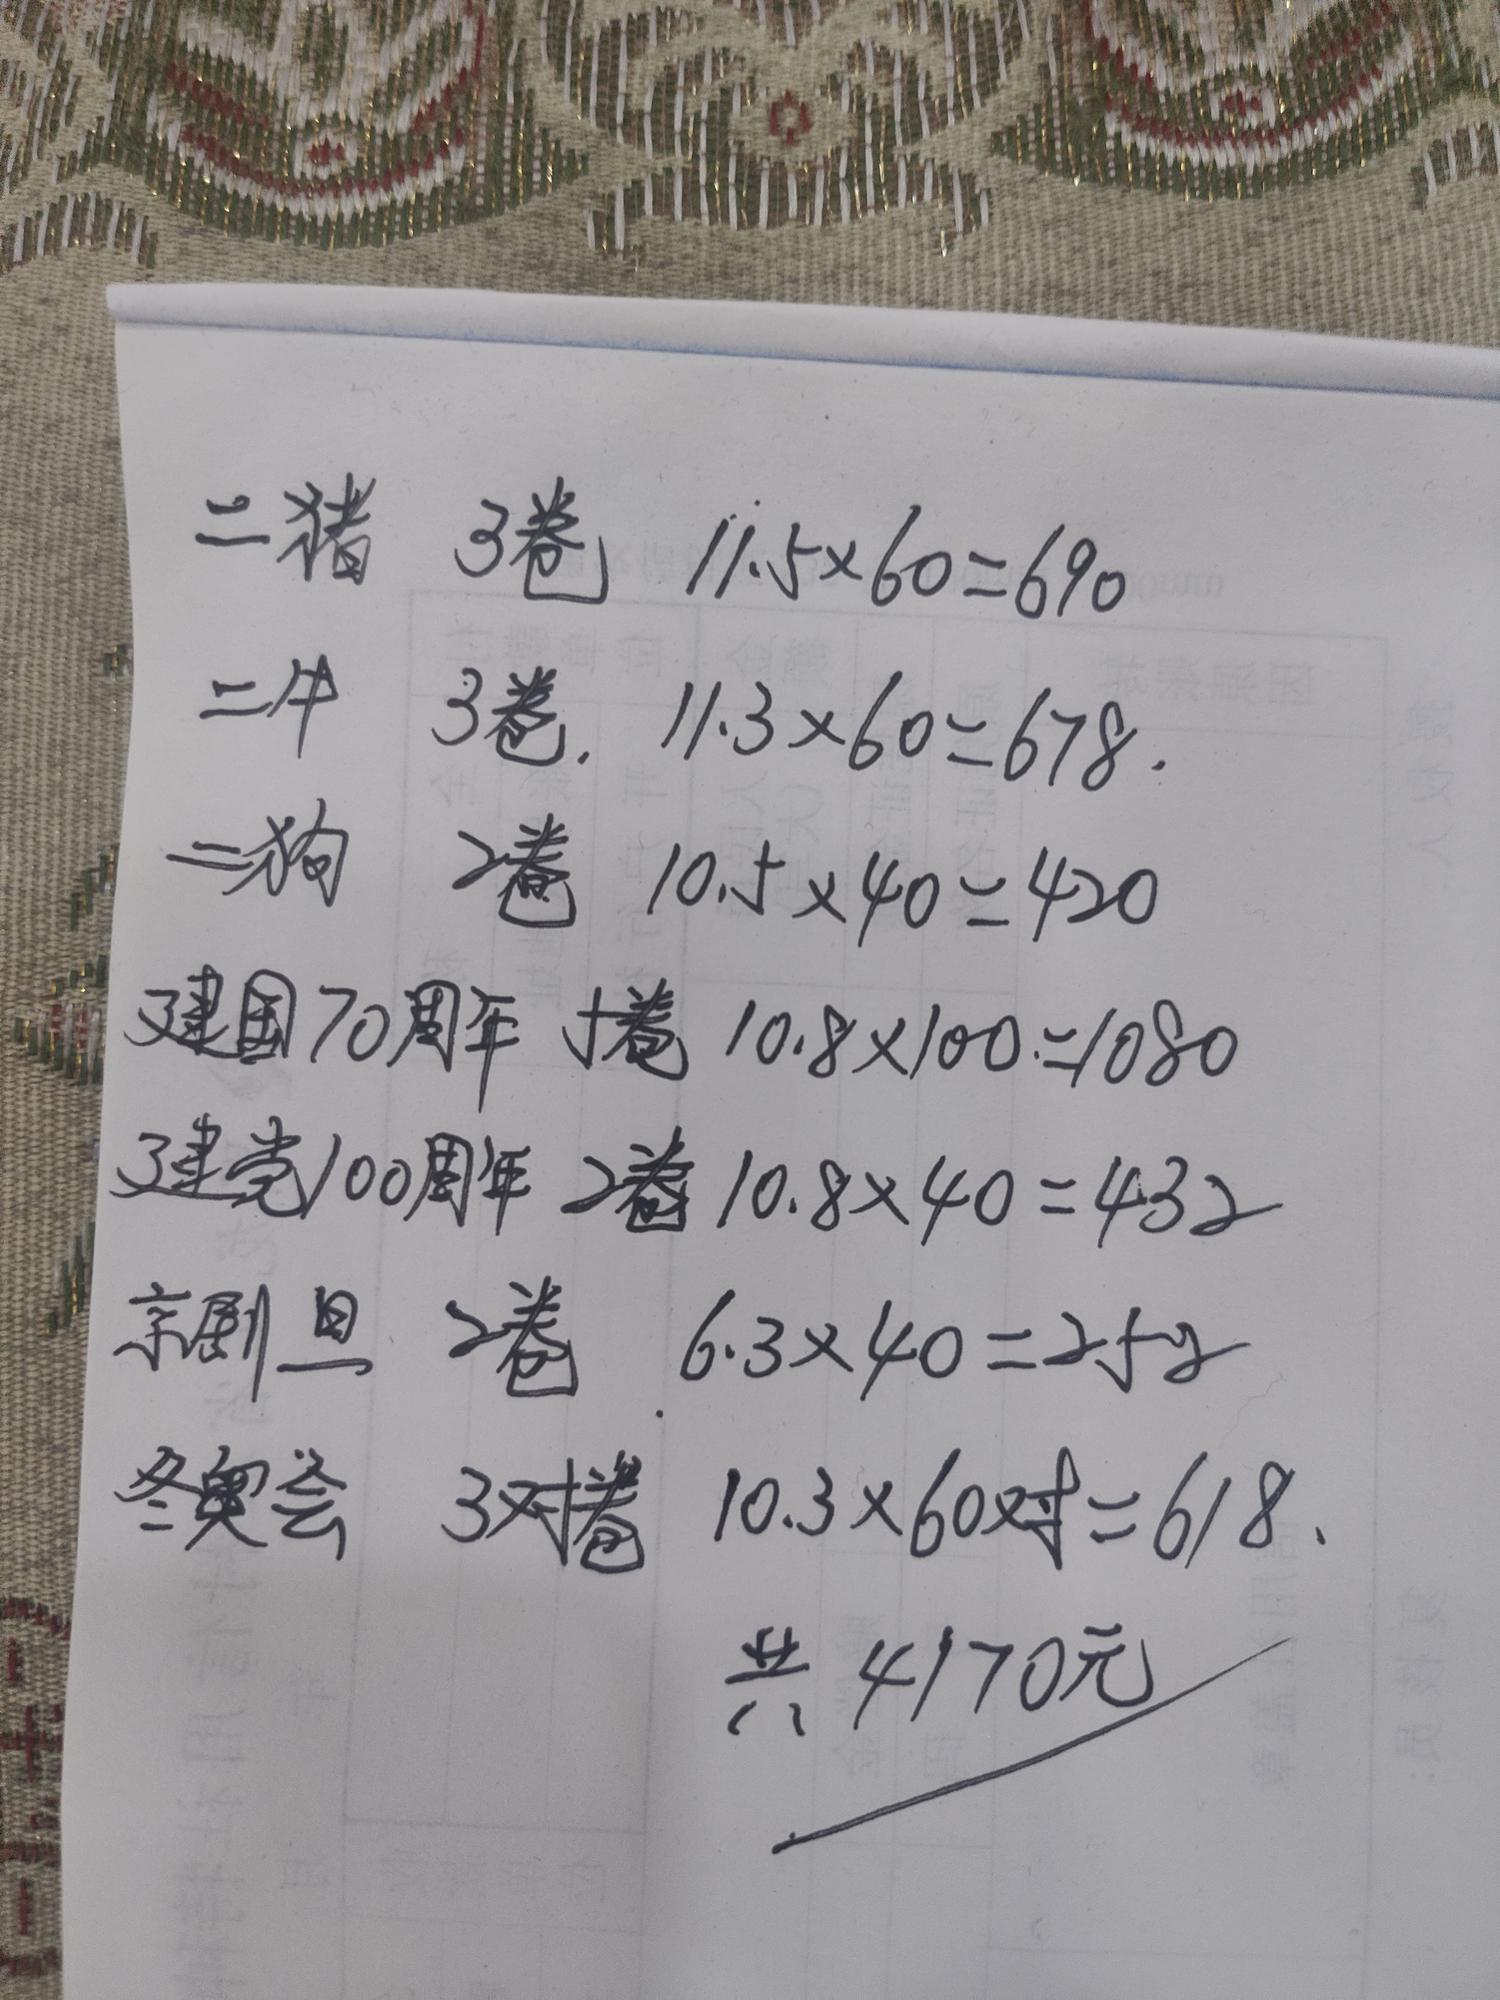 二猪 3卷 11.5×60=690
二牛 3卷. 11.3×60=678.
二狗 2卷 10.5×40=420
建国70周年 5卷 10.8×100=1080
建党100周年 2卷 10.8×40=432
京剧旦 2卷 6.3×40=252
冬奥会 3对卷 10.3×60对=618.
共4170元